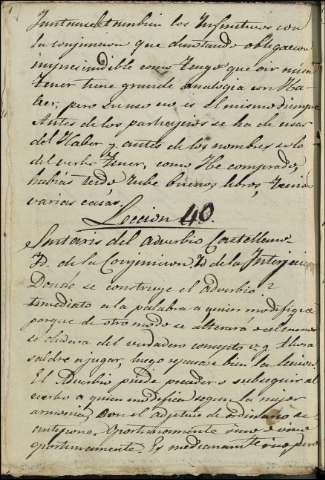 Juntanse tambien los Infinitivos con
la conjuncion que denotando obligacion
imprescindible como tengo que oir misa
Tener tiene grande analogia con Ha-
ber, pero su uso no es el mismo siempre
Antes de los participios se ha de usar
del Haber y antes de los nombres solo
del verbo Tener, como He comprado,
habias sido tube buenos libros, tenia
varias casas.
Leccion 40.
Sintaxis del adverbio Castellano
Yd. de la Conjuncion. Yd. de la Interjeccion
Donde se construye el Adverbio?
inmediato a la palabra a quien modifica
porque de otro modo se alterara o el
del verdadero concepto v.g. Ahora
saldre a jugar, luego repasare bien la leccion
El Adverbio puede preceder o subseguir al
verbo a quien modifica segun la mejor
armonia. Con el adjetivo de ordinario se
antepone. Oportunamente vino o vino
oportunamente. Es medianamente rico pero